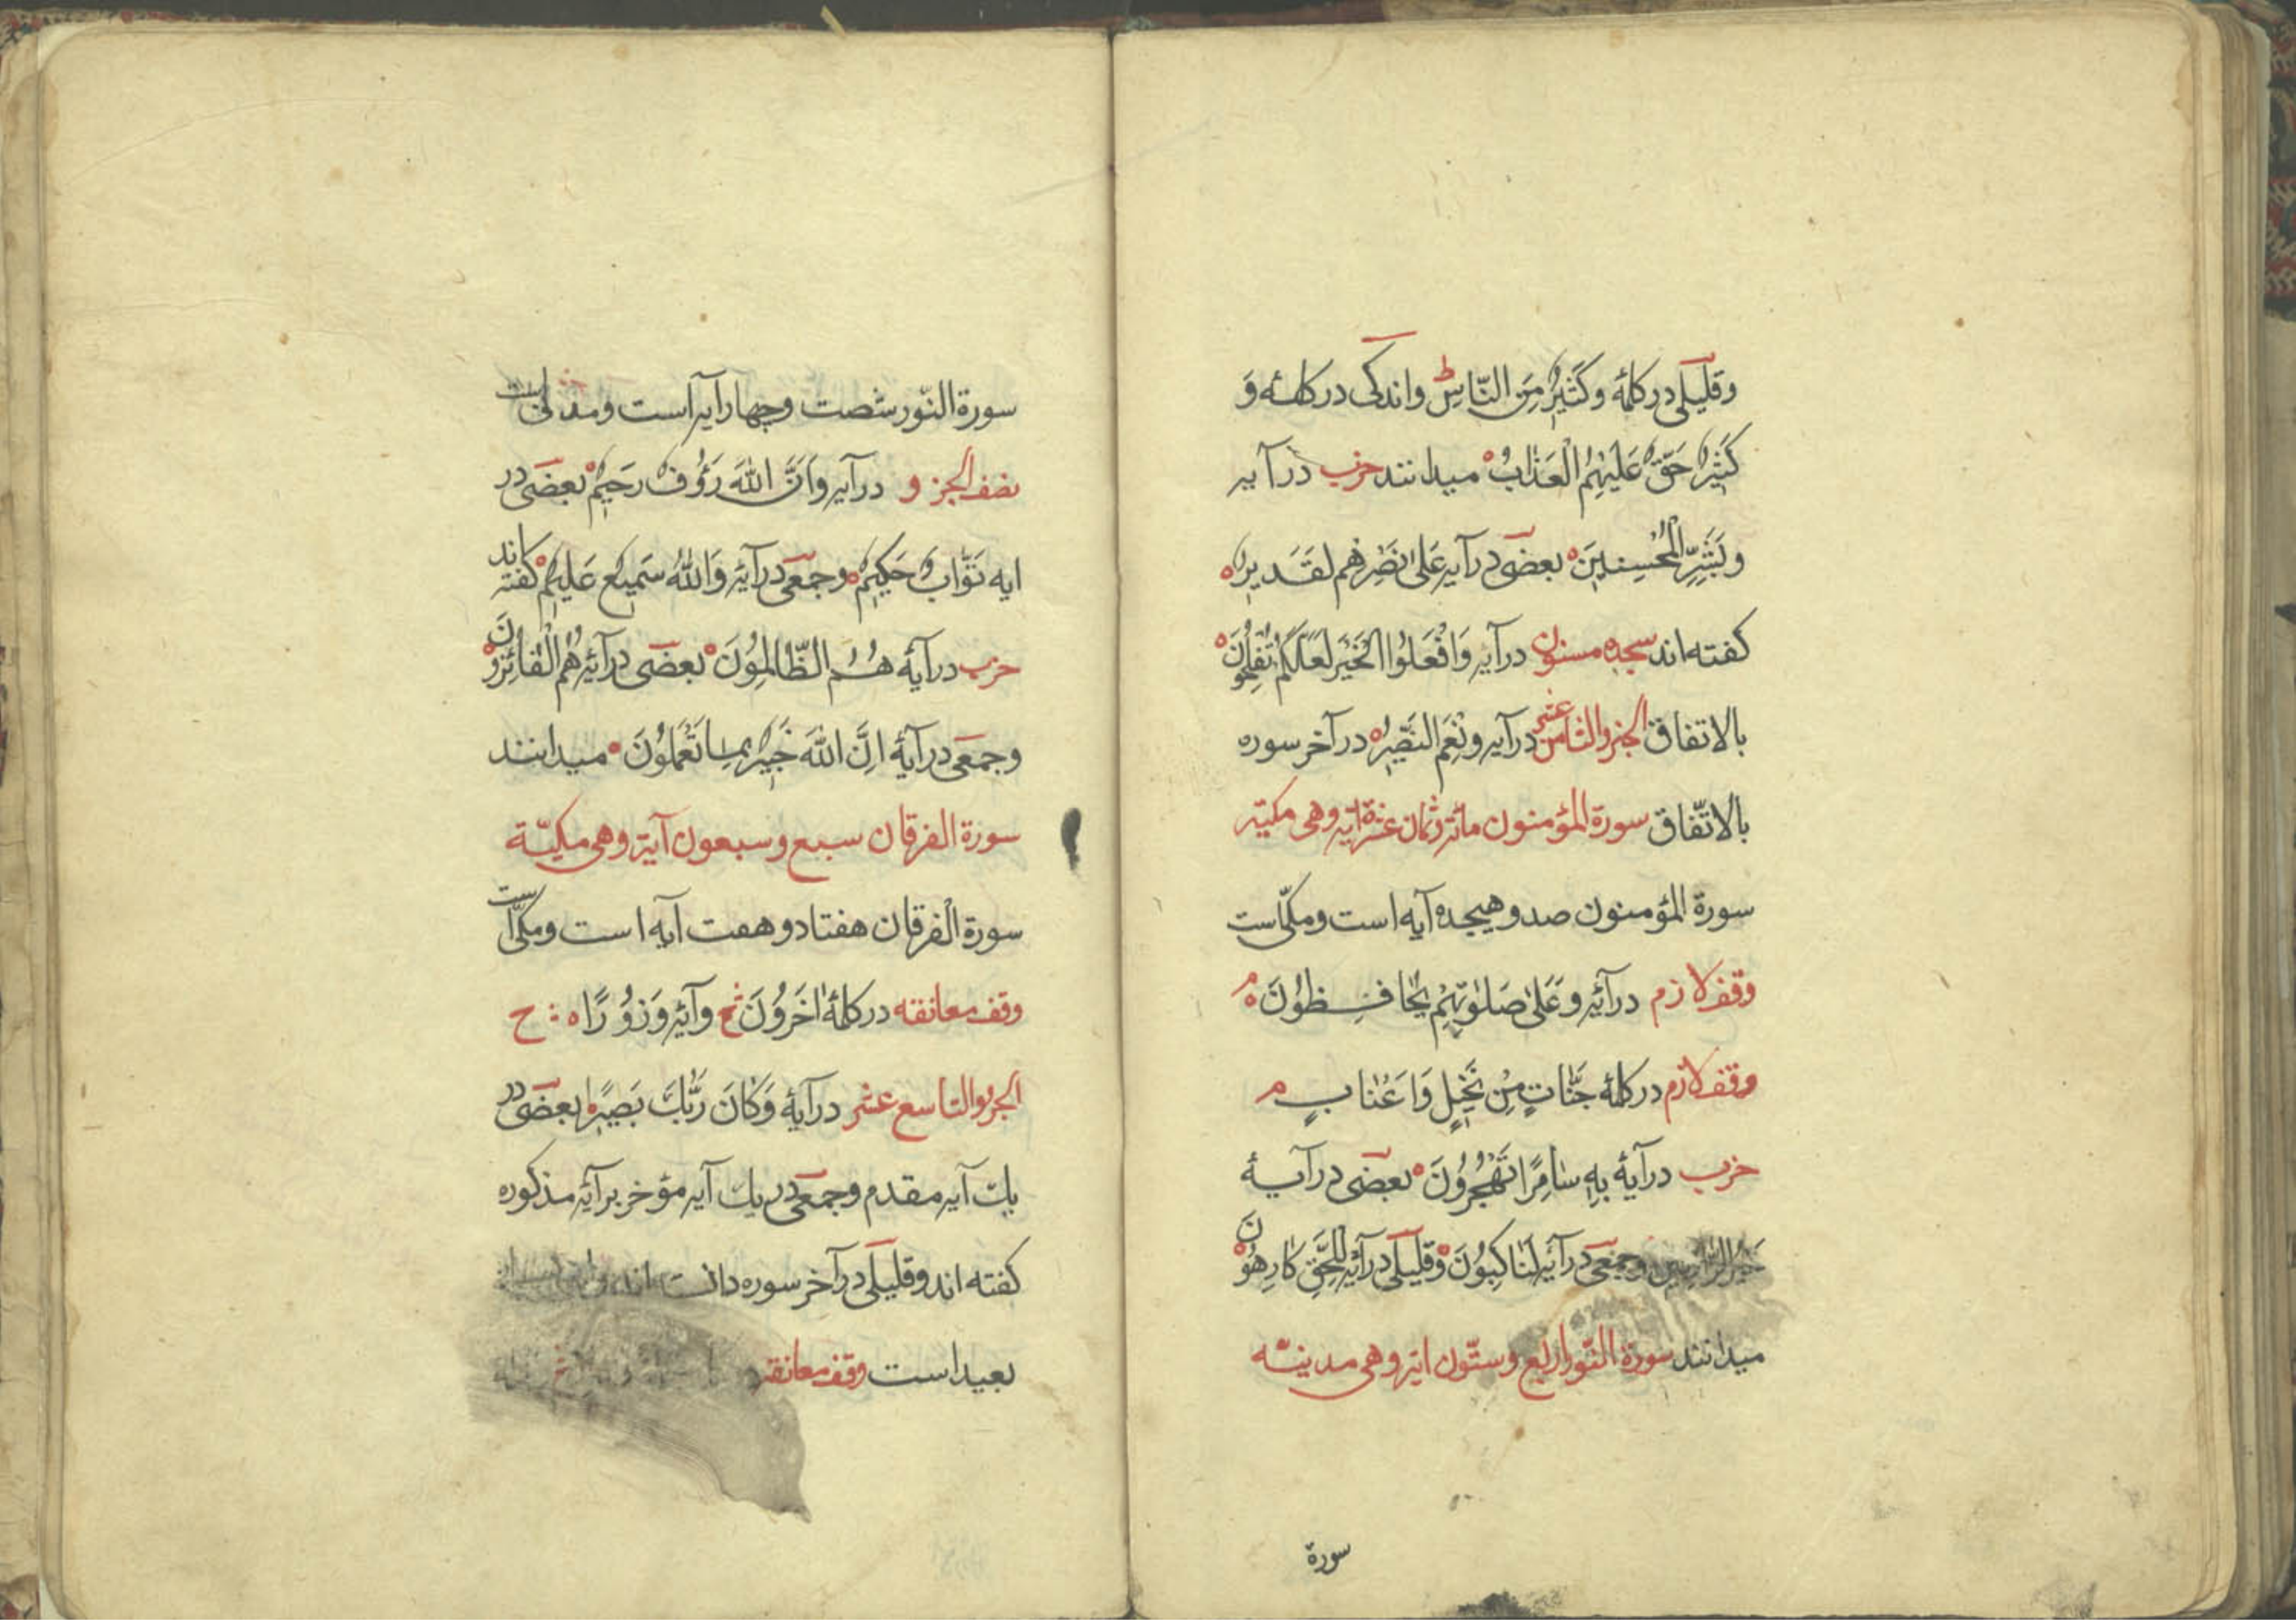 وقلیلی در کلمۀ وَكَثِيرٌ مِنَ النَّاسِ ط واندکی در کلمۀ وَ
كَثِيرٌ حَقَّ عَلَيْهِمُ الْعَذَابُ میدانند حزب در آیۀ
وَبَشِّرِ الْمُحْسِنِينَ بعضی در آیۀ عَلَىٰ نَصْرِهِم لَقَدِيرٌ
کفته اند سجده مسنون در آیۀ وَافْعَلُوا الْخَيْرَ لَعَلَّكُمْ تُفْلِحُونَ
بالاتفاق الجزو الثامن عشر در آیۀ وَنِعْمَ النَّصِيرُ در آخر سوره
بالاتّفاق سورة المؤمنون مائة وثمان عشرة آیة وهی مکیّة
سورة المؤمنون صد وهیجده آیه است ومکّی است
وقف لازم در آیۀ وَعَلَىٰ صَلَوٰتِهِمْ يُحَافِظُونَ م
وقف لازم در کلمۀ جَنَّاتٍ مِنْ نَخِيلٍ وَاَعْنَابٍ م
حزب در آیۀ بِهِ سَامِرًا تَهْجُرُونَ بعضی در آیۀ
خَيْرُ الرَّازِقِينَ وجمعی در آیۀ لَنَاكِبُونَ وقلیلی در آیۀ لِلْحَقِّ كَارِهُونَ
میدانند سورة النّور اربع وستّون آیة وهی مدنیّة
سورة
سورة النّور شصت وچهار آیه است ومدنی است
نصف الجزو در آیۀ وَاَنَّ اللّٰهَ رَؤُفٌ رَحِيمٌ بعضی در
ایه تَوَّابٌ حَكِيمٌ وجمعی در آیۀ وَاللّٰهُ سَمِيعٌ عَلِيمٌ کفته اند
حزب در آیۀ هُمُ الظَّالِمُونَ بعضی در آیۀ هُمُ الْفَائِزُونَ
وجمعی در آیۀ اِنَّ اللّٰهَ خَبِيرٌ بِمَا تَعْمَلُونَ میدانند
سورة الفرقان سبع وسبعون آیة وهی مکیّة
سورة الفرقان هفتاد وهفت آیه است ومکّی است
وقف معانقه در کلمۀ اٰخَرُونَ ج وآیۀ وَزُورًا ج
الجزو التاسع عشر در آیۀ وَكَانَ رَبُّكَ بَصِيرًا بعضی در
یك آیه مقدم وجمعی در یك آیه مؤخر بر آیۀ مذکوره
کفته اند وقلیلی در آخر سوره دانسته اند
بعید است وقف معانقه